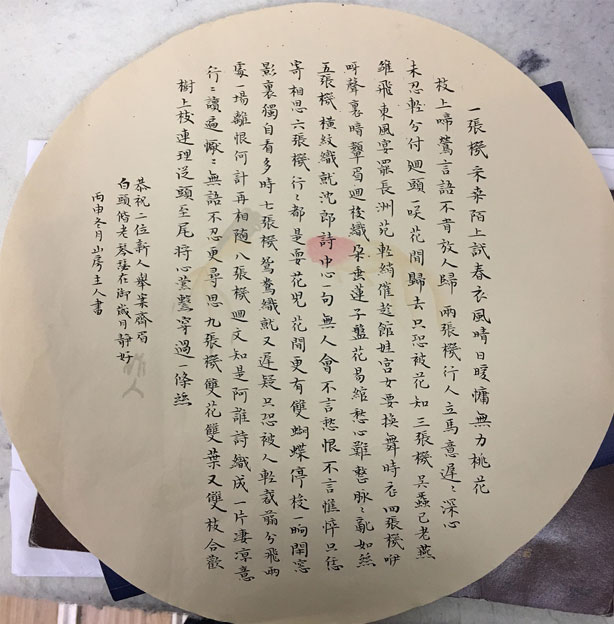 一張機采桑陌上試春衣風晴日暖慵無力桃花
枝上啼鶯言語不肯放人歸 兩張機行人立馬意遲〻深心
未忍輕分付迴頭一咲花間歸去只恐被花知 三張機吳蠶已老燕
雛飛東風宴罷長洲苑輕綃催趁館娃宮女要換舞時衣 四張機咿
呀聲裏暗顰眉迴梭織朵垂蓮子盤花易綰愁心難整脉〻亂如絲
五張機橫紋織就沈郎詩中心一句無人會不言愁恨不言憔悴只恁
寄相思六張機行〻都是耍花兒花間更有雙蝴蝶停梭一晌閑窗
影裏獨自看多時七張機鴛鴦織就又遲疑只恐被人輕裁翦分飛兩
處一場離恨何計再相隨八張機迴文知是阿誰詩織成一片凄涼意
行〻讀遍懨〻無語不忍更尋思 九張機雙花雙葉又雙枝合歡
樹上枝連理從頭至尾將心縈繫穿過一條絲
恭祝二位新人舉案齊眉
白頭偕老琴瑟在御歲月靜好
丙申冬月山房主人書